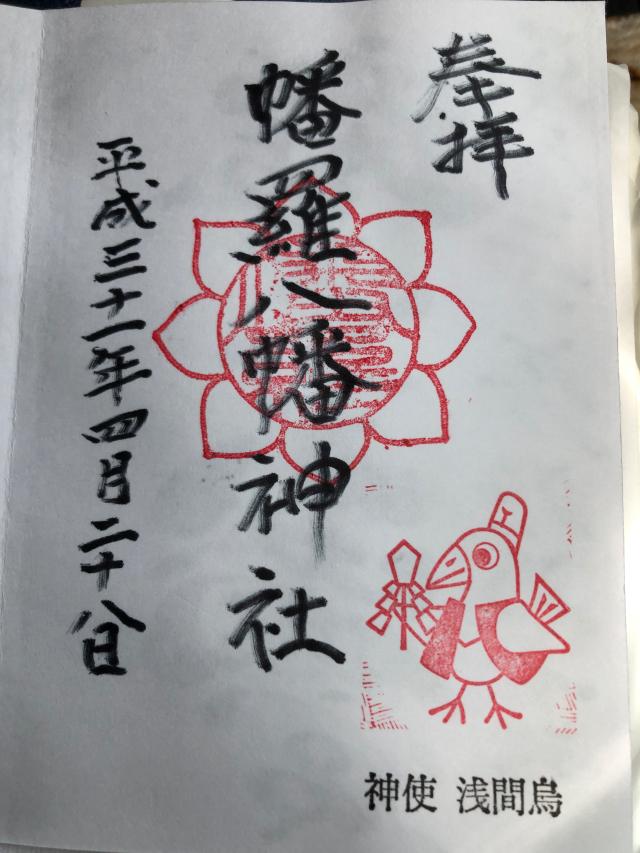 奉拝
幡羅八幡神社
平成三十一年四月二十八日
神使 浅間烏